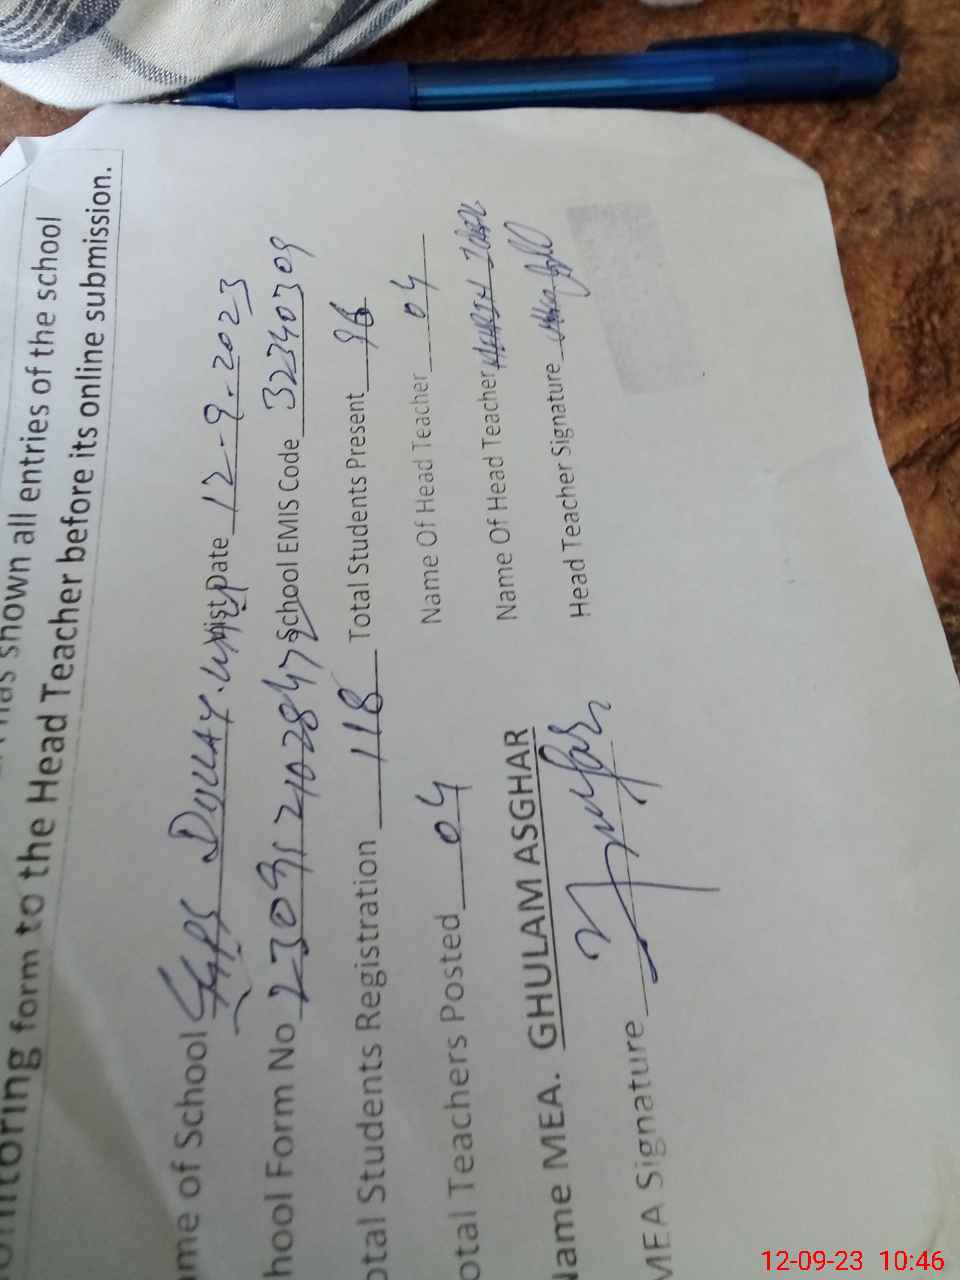 onitoring form to the Head Teacher before its online submission.
has shown all entries of the school
ame of School GGPS DULLAY Visit Date 12-9-2023
hool Form No School EMIS Code 32340309
otal Students Registration 118 Total Students Present 96
otal Teachers Posted 04 Name Of Head Teacher 04
Name MEA. GHULAM ASGHAR Name Of Head Teacher
MEA Signature Head Teacher Signature
12-09-23 10:46